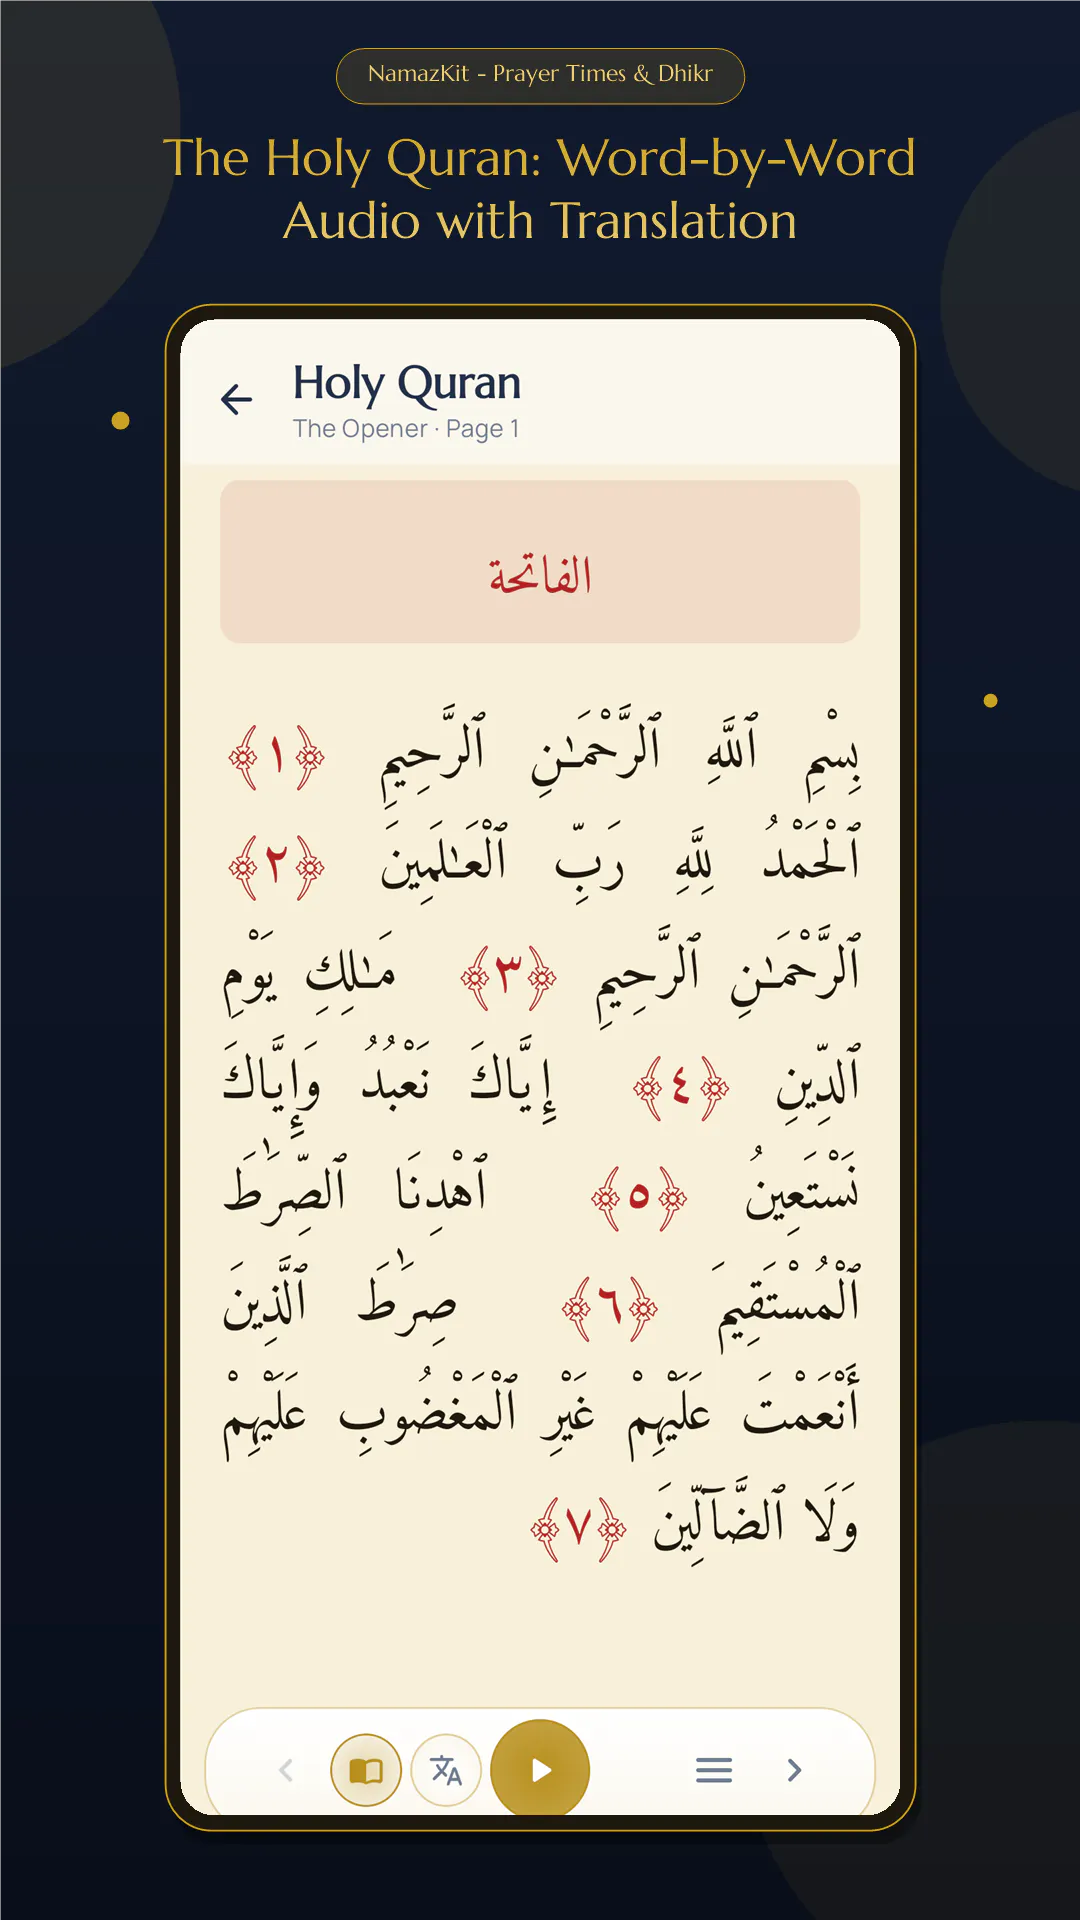 NamazKit - Prayer Times & Dhikr
The Holy Quran: Word-by-Word
Audio with Translation
Holy Quran
The Opener · Page 1
الفاتحة
بِسْمِ ٱللَّهِ ٱلرَّحْمَـٰنِ ٱلرَّحِيمِ ﴿١﴾
ٱلْحَمْدُ لِلَّهِ رَبِّ ٱلْعَـٰلَمِينَ ﴿٢﴾
ٱلرَّحْمَـٰنِ ٱلرَّحِيمِ ﴿٣﴾ مَـٰلِكِ يَوْمِ
ٱلدِّينِ ﴿٤﴾ إِيَّاكَ نَعْبُدُ وَإِيَّاكَ
نَسْتَعِينُ ﴿٥﴾ ٱهْدِنَا ٱلصِّرَٰطَ
ٱلْمُسْتَقِيمَ ﴿٦﴾ صِرَٰطَ ٱلَّذِينَ
أَنْعَمْتَ عَلَيْهِمْ غَيْرِ ٱلْمَغْضُوبِ عَلَيْهِمْ
وَلَا ٱلضَّآلِّينَ ﴿٧﴾